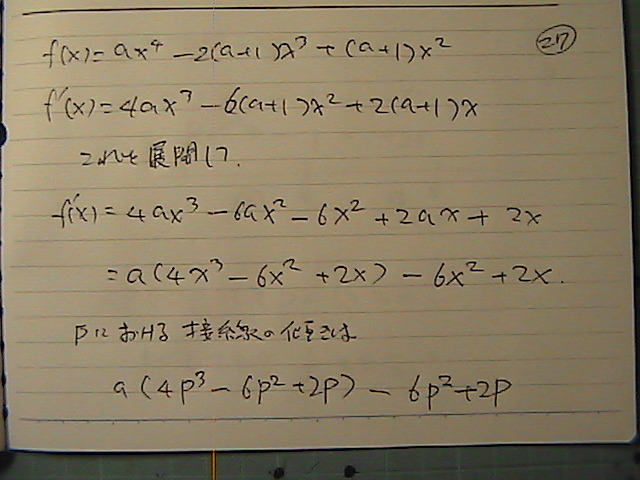 ㉗
f(x)=ax⁴-2(a+1)x³+(a+1)x²
f'(x)=4ax³-6(a+1)x²+2(a+1)x
これを展開して.
f'(x)=4ax³-6ax²-6x²+2ax+2x
=a(4x³-6x²+2x)-6x²+2x.
Pにおける接線の傾きは
a(4p³-6p²+2p)-6p²+2p